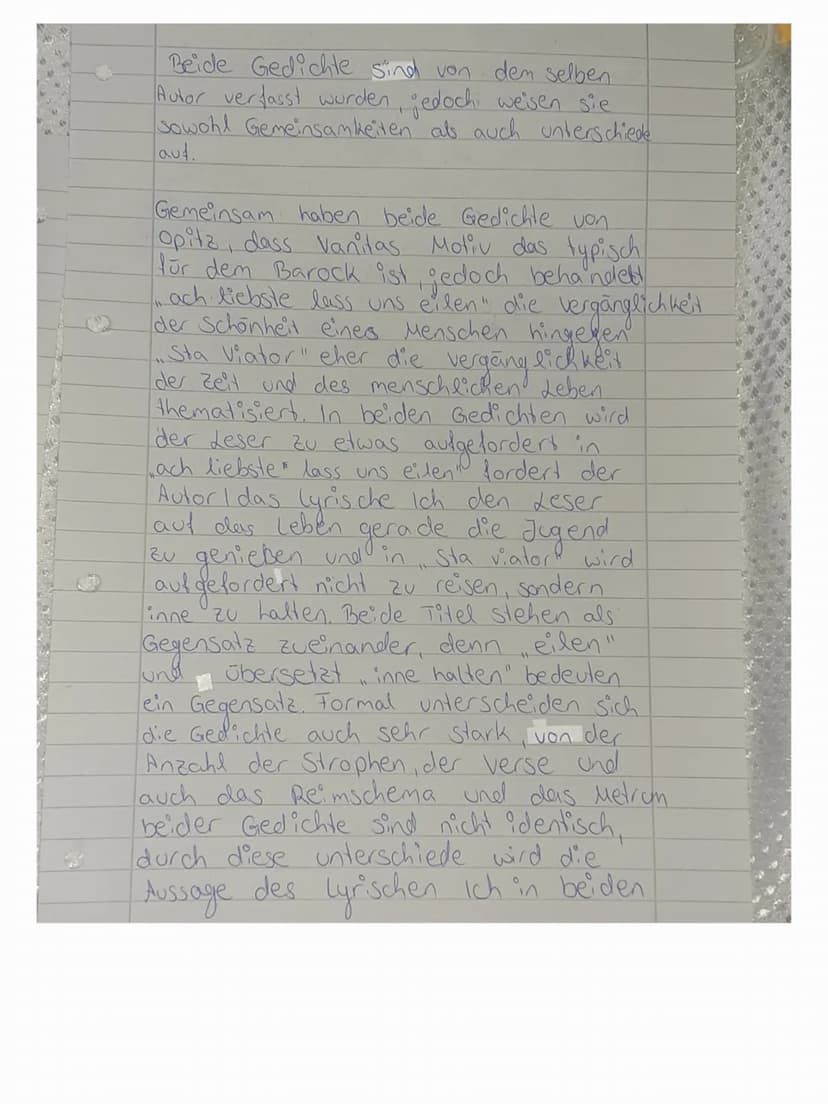 Beide Gedichte sind von dem selben
Autor verfasst wurden, jedoch weisen sie
sowohl Gemeinsamkeiten als auch unterschiede
auf.
Gemeinsam haben beide Gedichte von
Opitz, dass Vanitas Motiv das typisch
für dem Barock ist, jedoch behandelt
„ach liebste lass uns eilen" die vergänglichkeit
der Schönheit eines Menschen hingegen
„Sta Viator" eher die vergänglichkeit
der Zeit und des menschlichen Leben
thematisiert. In beiden Gedichten wird
der Leser zu etwas aufgefordert in
„ach liebste" lass uns eilen" fordert der
Autor/das lyrische Ich den Leser
auf das Leben gerade die Jugend
zu genießen und in „Sta viator" wird
aufgefordert nicht zu reisen, sondern
inne zu halten. Beide Titel stehen als
Gegensatz zueinander, denn „eilen"
und übersetzt „inne halten" bedeuten
ein Gegensatz. Formal unterscheiden sich
die Gedichte auch sehr stark, von der
Anzahl der Strophen, der Verse und
auch das Reimschema und das Metrum
beider Gedichte sind nicht identisch,
durch diese unterschiede wird die
Aussage des Lyrischen Ich in beiden